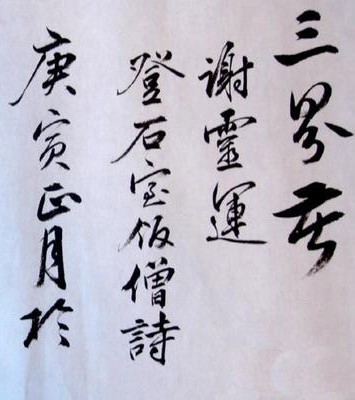 三界苦
謝靈運
登石室飯僧詩
庚寅正月於